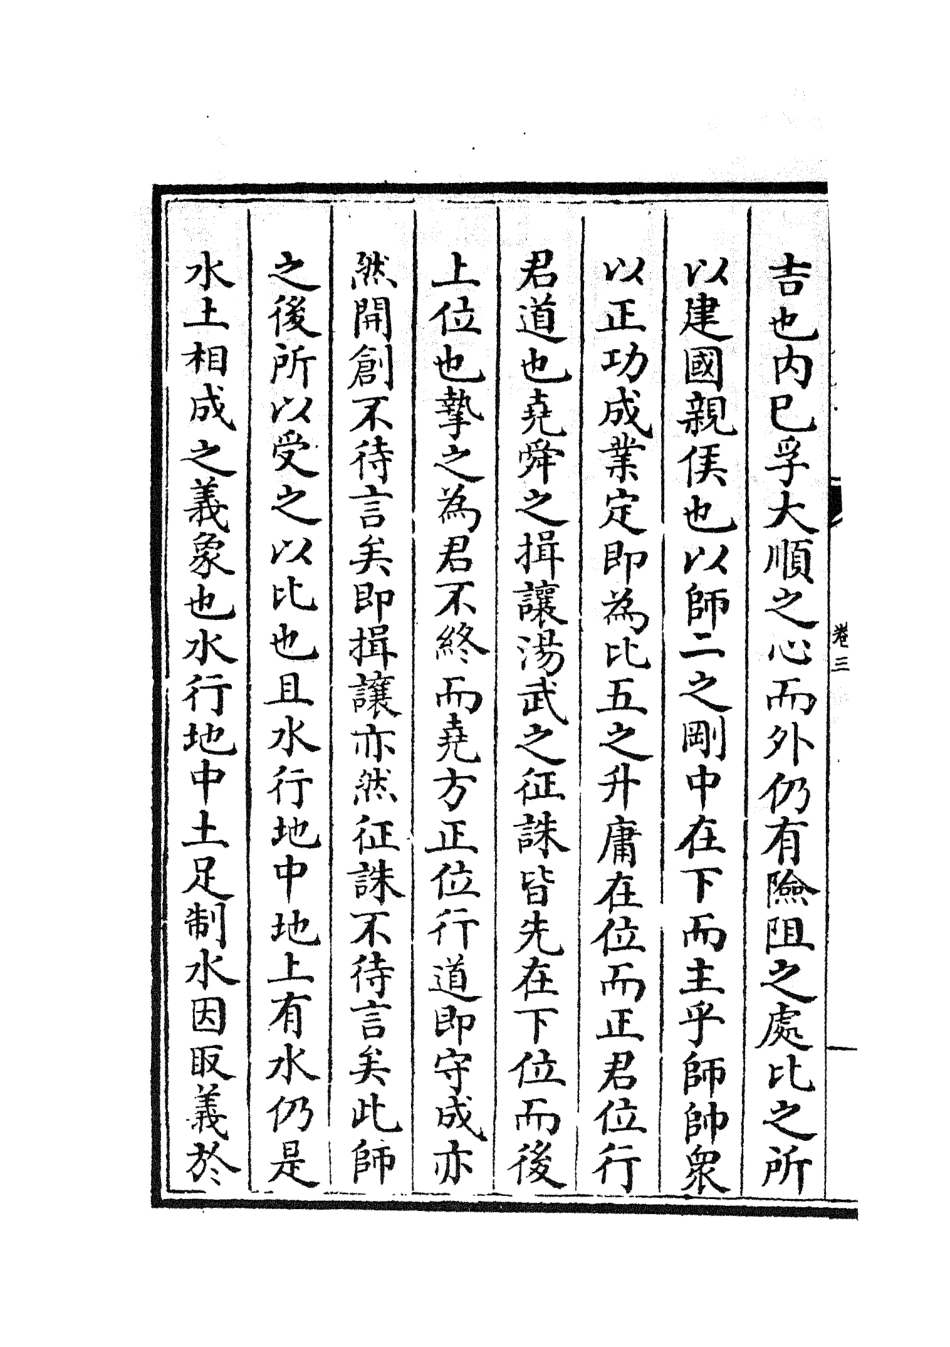 吉也内已孚大順之心而外仍有險阻之處比之所
以建國親侯也以師二之剛中在下而主乎師帥衆
以正功成業定即為比五之升庸在位而正君位行
君道也堯舜之揖讓湯武之征誅皆先在下位而後
上位也摯之為君不終而堯方正位行道即守成亦
然開創不待言矣即揖讓亦然征誅不待言矣此師
之後所以受之以比也且水行地中地上有水仍是
水土相成之義象也水行地中土足制水因取義於
卷三